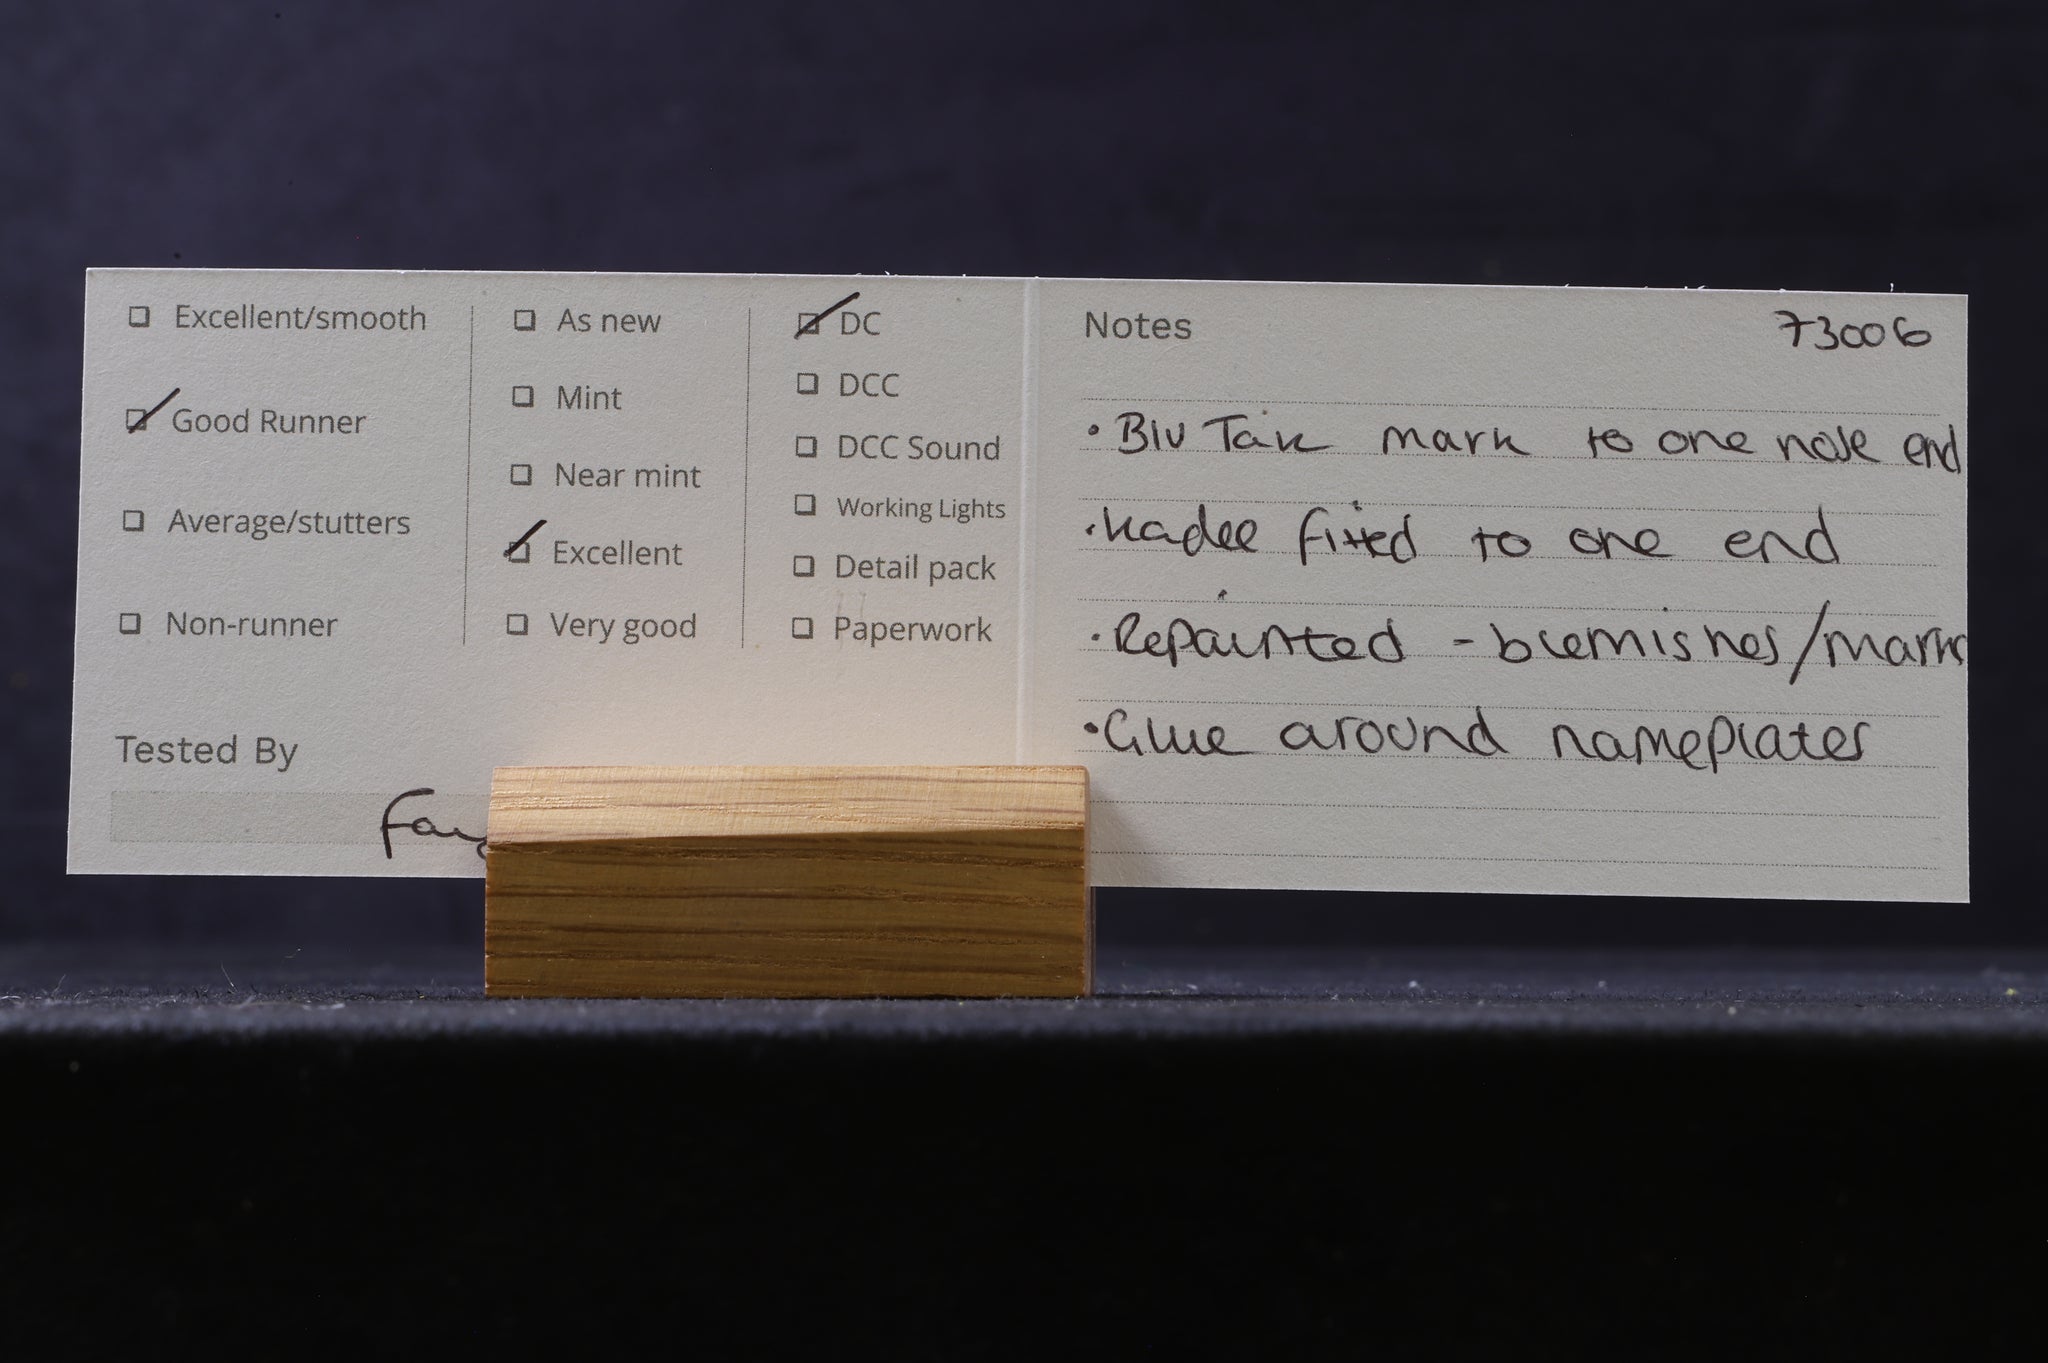 Excellent/smooth
Good Runner
Average/stutters
Non-runner
As new
Mint
Near mint
Excellent
Very good
DC
DCC
DCC Sound
Working Lights
Detail pack
Paperwork
Tested By
Notes
73006
• Blu Tak mark to one nose end
• Kadee fitted to one end
• Repainted - blemishes/marks
• Glue around nameplates